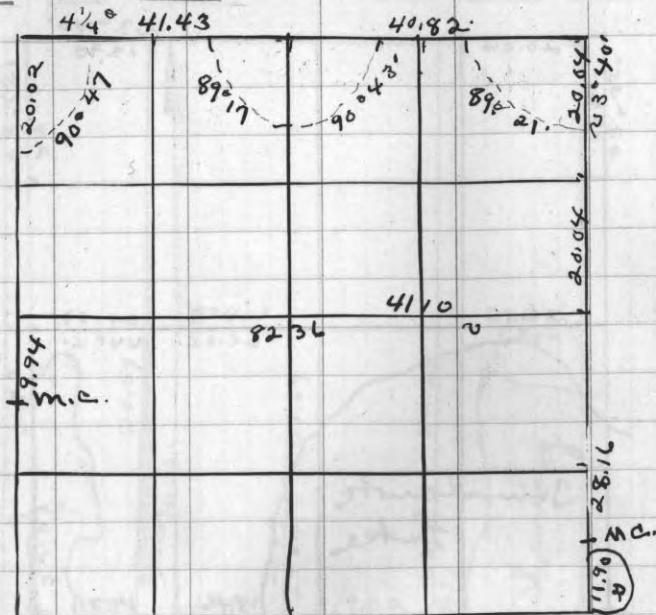 4 1/4 a 41.43 40.82
20.02
90° 47
89° 17
90° 43'
89° 21'
20.04
N 3° 40'
20.04
41 10
82 36
9.94
M.C.
28.16
M.C.
11.90